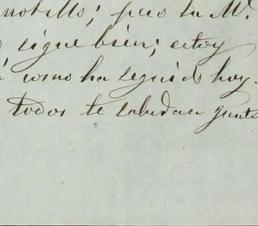 pero la M.
sigue bien; estoy
como ha seguido hoy.
todos te saludan junto